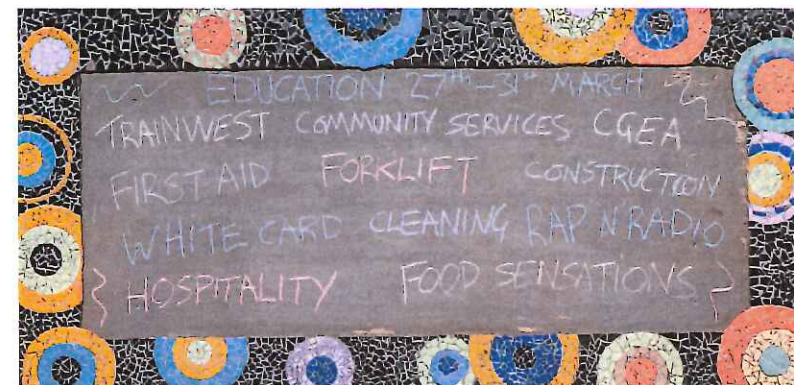 EDUCATION 27th-31st MARCH
TRAINWEST COMMUNITY SERVICES CGEA
FIRST AID FORKLIFT CONSTRUCTION
WHITE CARD CLEANING RAP N'RADIO
HOSPITALITY FOOD SENSATIONS